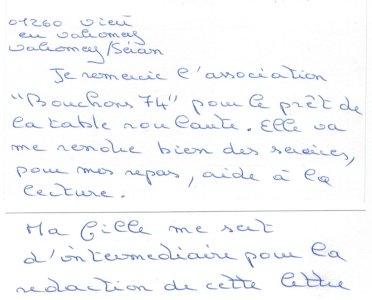 01260 vieu
en valromey
valromey/Séran
Je remercie l'association
"Bouchons 74" pour le prêt de
la table roulante. Elle va
me rendre bien des services,
pour mes repas, aide à la
lecture.
Ma fille me sert
d'intermediaire pour la
redaction de cette lettre